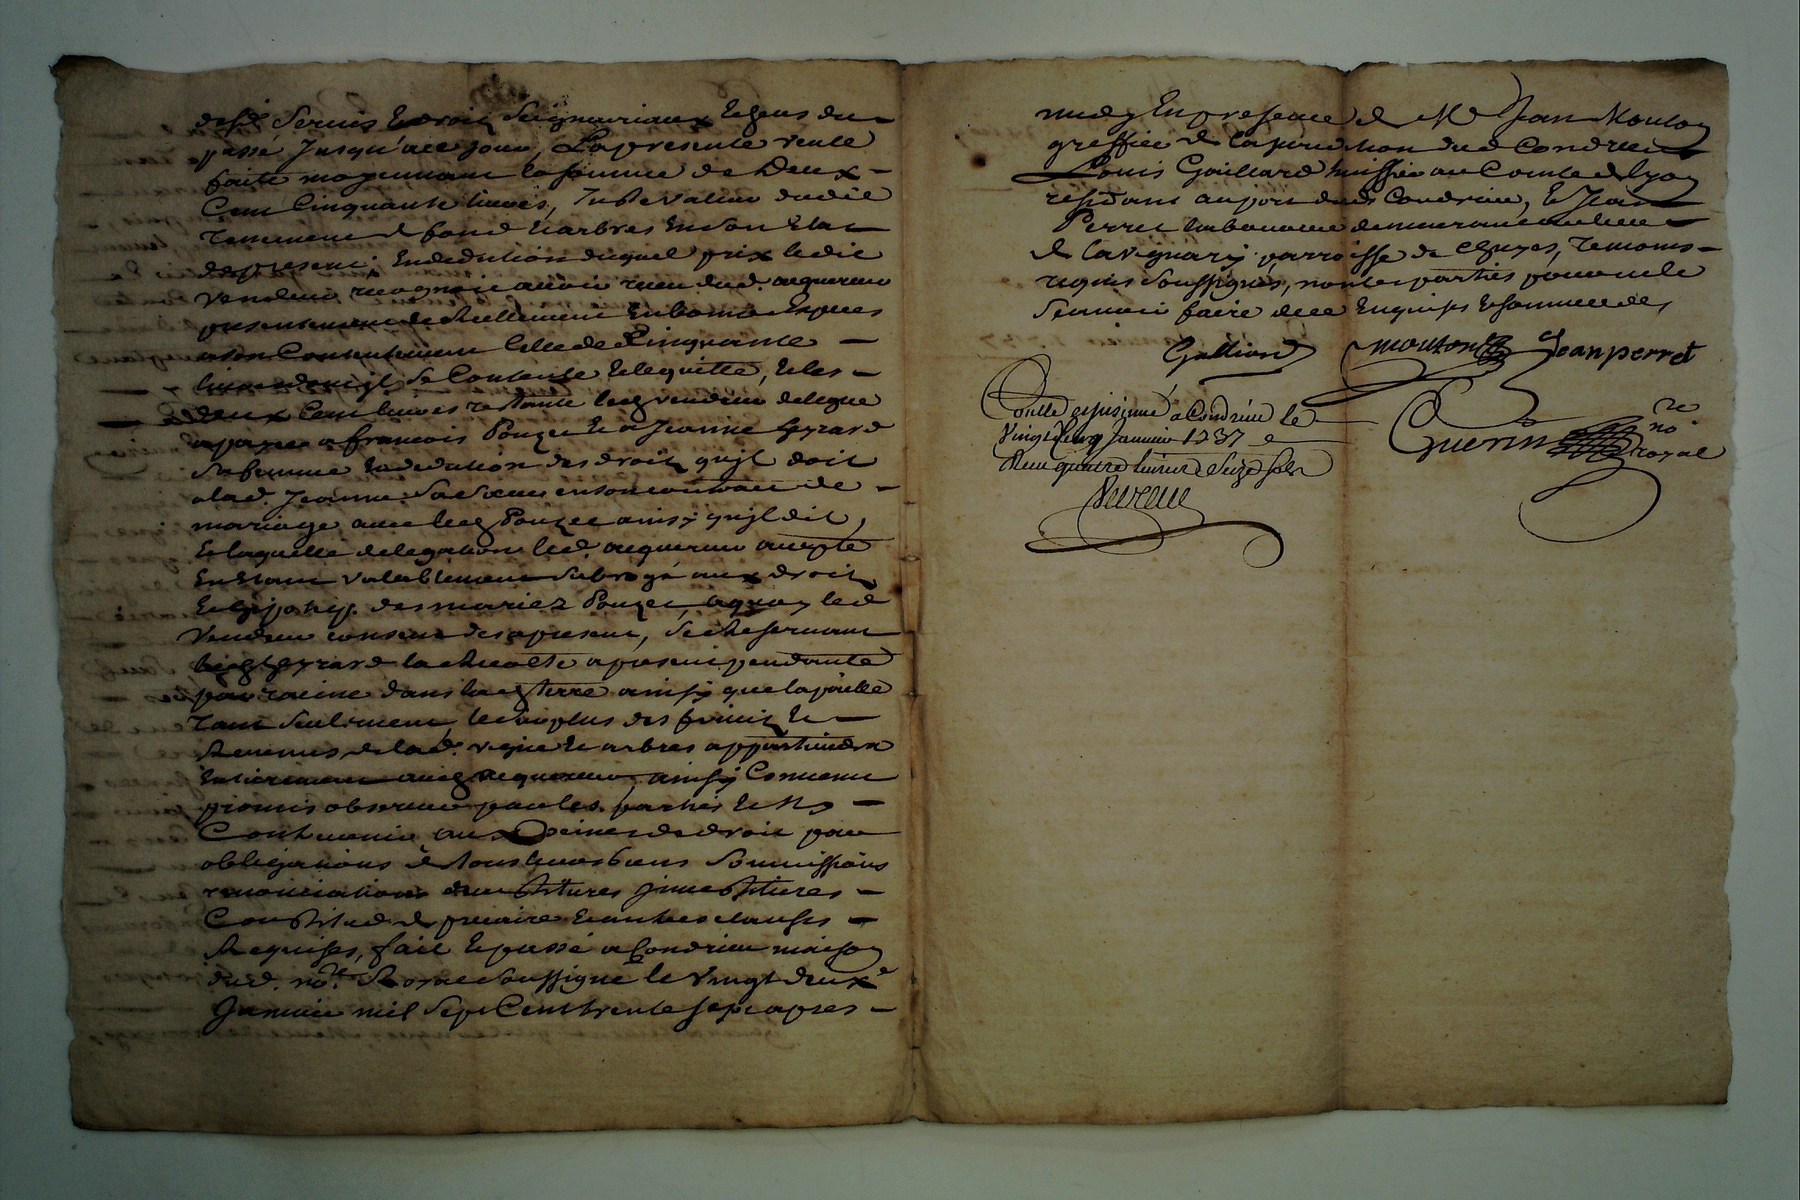 desd. servis et droits seigneuriaux et gens du
passé jusqu'a ce jour, La presente vente
faite moyennant la somme de Deux
Cent Cinquante livres, Juste valleur dudit
tenement de fond et arbres en son etat
de present; En dedution duquel prix ledit
vendeur recognoit avoir receu dud. acquereur
presentement et reellement en bonnes Especes
a son Contentement Celle de Cinquante
livres dont jl se Contente et le quitte, et les
deux Cent livres restante led vendeur delegue
a payer a francois Pouzet et a Jeanne Geyrard
sa femme en dedution des droits qu'jl doit
a lad. Jeanne sa soeur en son contract de
mariage avec led Pouzet ainsy qu'jl dit,
Et laquelle delegation led. acquereur accepte
En Etant valablement subrogé aux droits
et hypoteq. des mariez Pouzet, a quoy led
vendeur consent des a present, se Reservant
led Geyrard la Recolte a present pendante
par racine dans lad terre ainsy que la paille
tant seulement, le surplus des fruits et
Revenus de lad. vigne et arbres appartiendra
Entierement aud acquereur, ainsy Convenu
promis observer par les parties et n'y
Contrevenir aux Peines de droit par
obligations de tous leurs biens soumissions
renonciations devestitures jnvestitures
Constitud de precaire et autres clauses
Requises, fait et passé a Condrieu maison
dud. no.re Royal soussigné le vingt deux.e
Janvier mil sept Cent trente sept apres
midy En presence de Me Jean Mouton
greffier de la juridiction dud Condrieu
Louis Gaillard huissier au Comté de Lyon
residant au port dud Condrieu, et Jean
Perret laboureur demeurant au lieu
de Lavignary parroisse de Chuyes, temoins
requis soussignés, non les parties pour ne le
scavoir faire de ce Enquises et sommées
Galliard mouton Jean perret
Controllé et jnsinué a Condrieu le
vingt Janvier 1737
Receu quatre livres seize sols
Guerin no.re royal